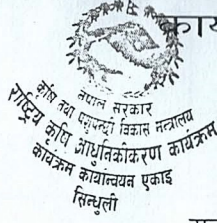 नेपाल सरकार
कृषि तथा पशुपन्छी विकास मन्त्रालय
राष्ट्रिय कृषि आधुनिकीकरण कार्यक्रम
कार्यक्रम कार्यान्वयन एकाइ
सिन्धुली